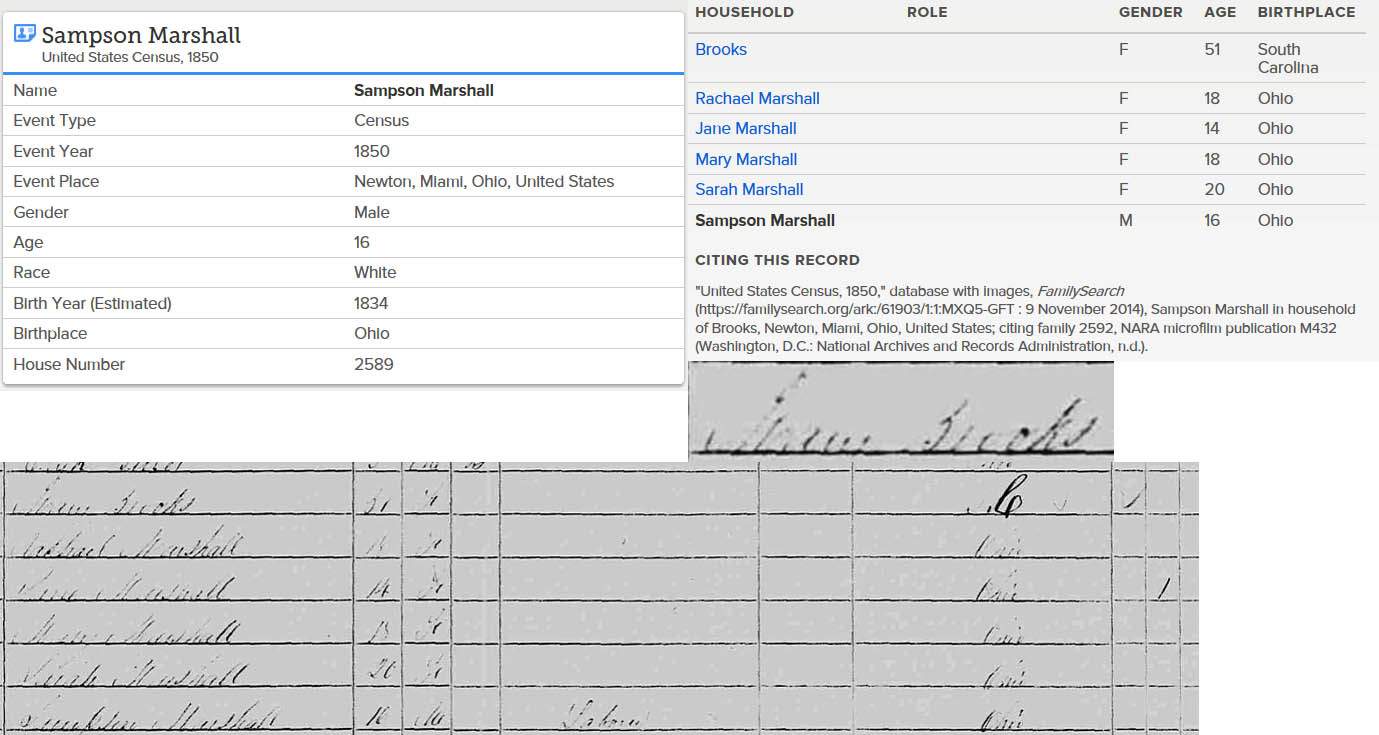 Sampson Marshall
United States Census, 1850
Name Sampson Marshall
Event Type Census
Event Year 1850
Event Place Newton, Miami, Ohio, United States
Gender Male
Age 16
Race White
Birth Year (Estimated) 1834
Birthplace Ohio
House Number 2589
HOUSEHOLD ROLE GENDER AGE BIRTHPLACE
Brooks F 51 South
Carolina
Rachael Marshall F 18 Ohio
Jane Marshall F 14 Ohio
Mary Marshall F 18 Ohio
Sarah Marshall F 20 Ohio
Sampson Marshall M 16 Ohio
CITING THIS RECORD
"United States Census, 1850," database with images, FamilySearch
(https://familysearch.org/ark:/61903/1:1:MXQ5-GFT : 9 November 2014), Sampson Marshall in household
of Brooks, Newton, Miami, Ohio, United States; citing family 2592, NARA microfilm publication M432
(Washington, D.C.: National Archives and Records Administration, n.d.).
Brooks
Brooks 51 F
Rachael Marshall F Ohio
Jane Marshall 14 F Ohio 1
Mary Marshall 18 F Ohio
Sarah Marshall 20 F Ohio
Sampson Marshall 16 M Labour Ohio